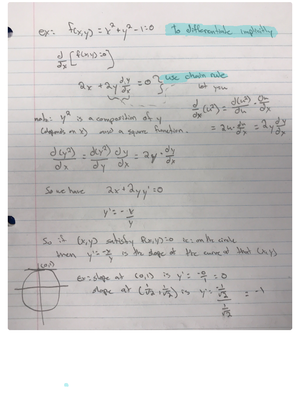 ex: f(x,y) = x² + y² - 1 = 0 to differentiate implicitly
d/dx [f(x,y)=0]
2x + 2y dy/dx = 0 } use chain rule
let y=u
d/dx (u²) = d(u²)/du · du/dx
= 2u · du/dx = 2y dy/dx
note: y² is a composition of y
(depends on x) and a square function.
d(y²)/dx = d(y²)/dy dy/dx = 2y · dy/dx
So we have 2x + 2yy' = 0
y' = -x/y
So if (x,y) satisfy f(x,y)=0 ie: on the circle
then y' = -x/y is the slope of the curve at that (x,y)
(0,1)
ex: slope at (0,1) is y' = -0/1 = 0
slope at (1/√2, 1/√2) is y' = -1/√2 / 1/√2 = -1